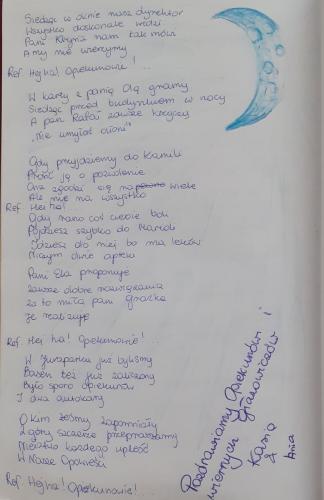 Siedząc w oknie nasz dyrektor
Wszystko doskonale widzi
Pani Krysia nam tak mówi
A my nie wierzymy
Ref. Hejha! Opiekunowie!
W karty z panią Olą gramy
Siedząc przed budynkiem w nocy
A pan Rafał zawsze krzyczy
"Nie umyłaś dłoni"
Gdy przyjdziemy do Kamili
Prosić ją o pozwolenie
Ona zgodzi się na wiele
Ale nie na wszystko
Ref. Hej ha!
Gdy rano coś ciebie boli
Pójdziesz szybko do
Idziesz do niej bo ma leków
Niczym dwie apteki
Pani Ela proponuje
Zawsze dobre rozwiązania
Za to miła pani Grażka
Je realizuje
Ref. Hej ha! Opiekunowie!
W Juraparku już byliśmy
Basen też już zaliczony
Było sporo opiekunów
I dwa autokary
O kim żeśmy zapomniały
Z góry szczerze przepraszamy
Mieliśmy każdego upleść
W Nasze Opowieści
Ref. Hejha! Opiekunowie!
Pozdrawiamy Opiekunów i
wiernych
Kasia
&
Ania